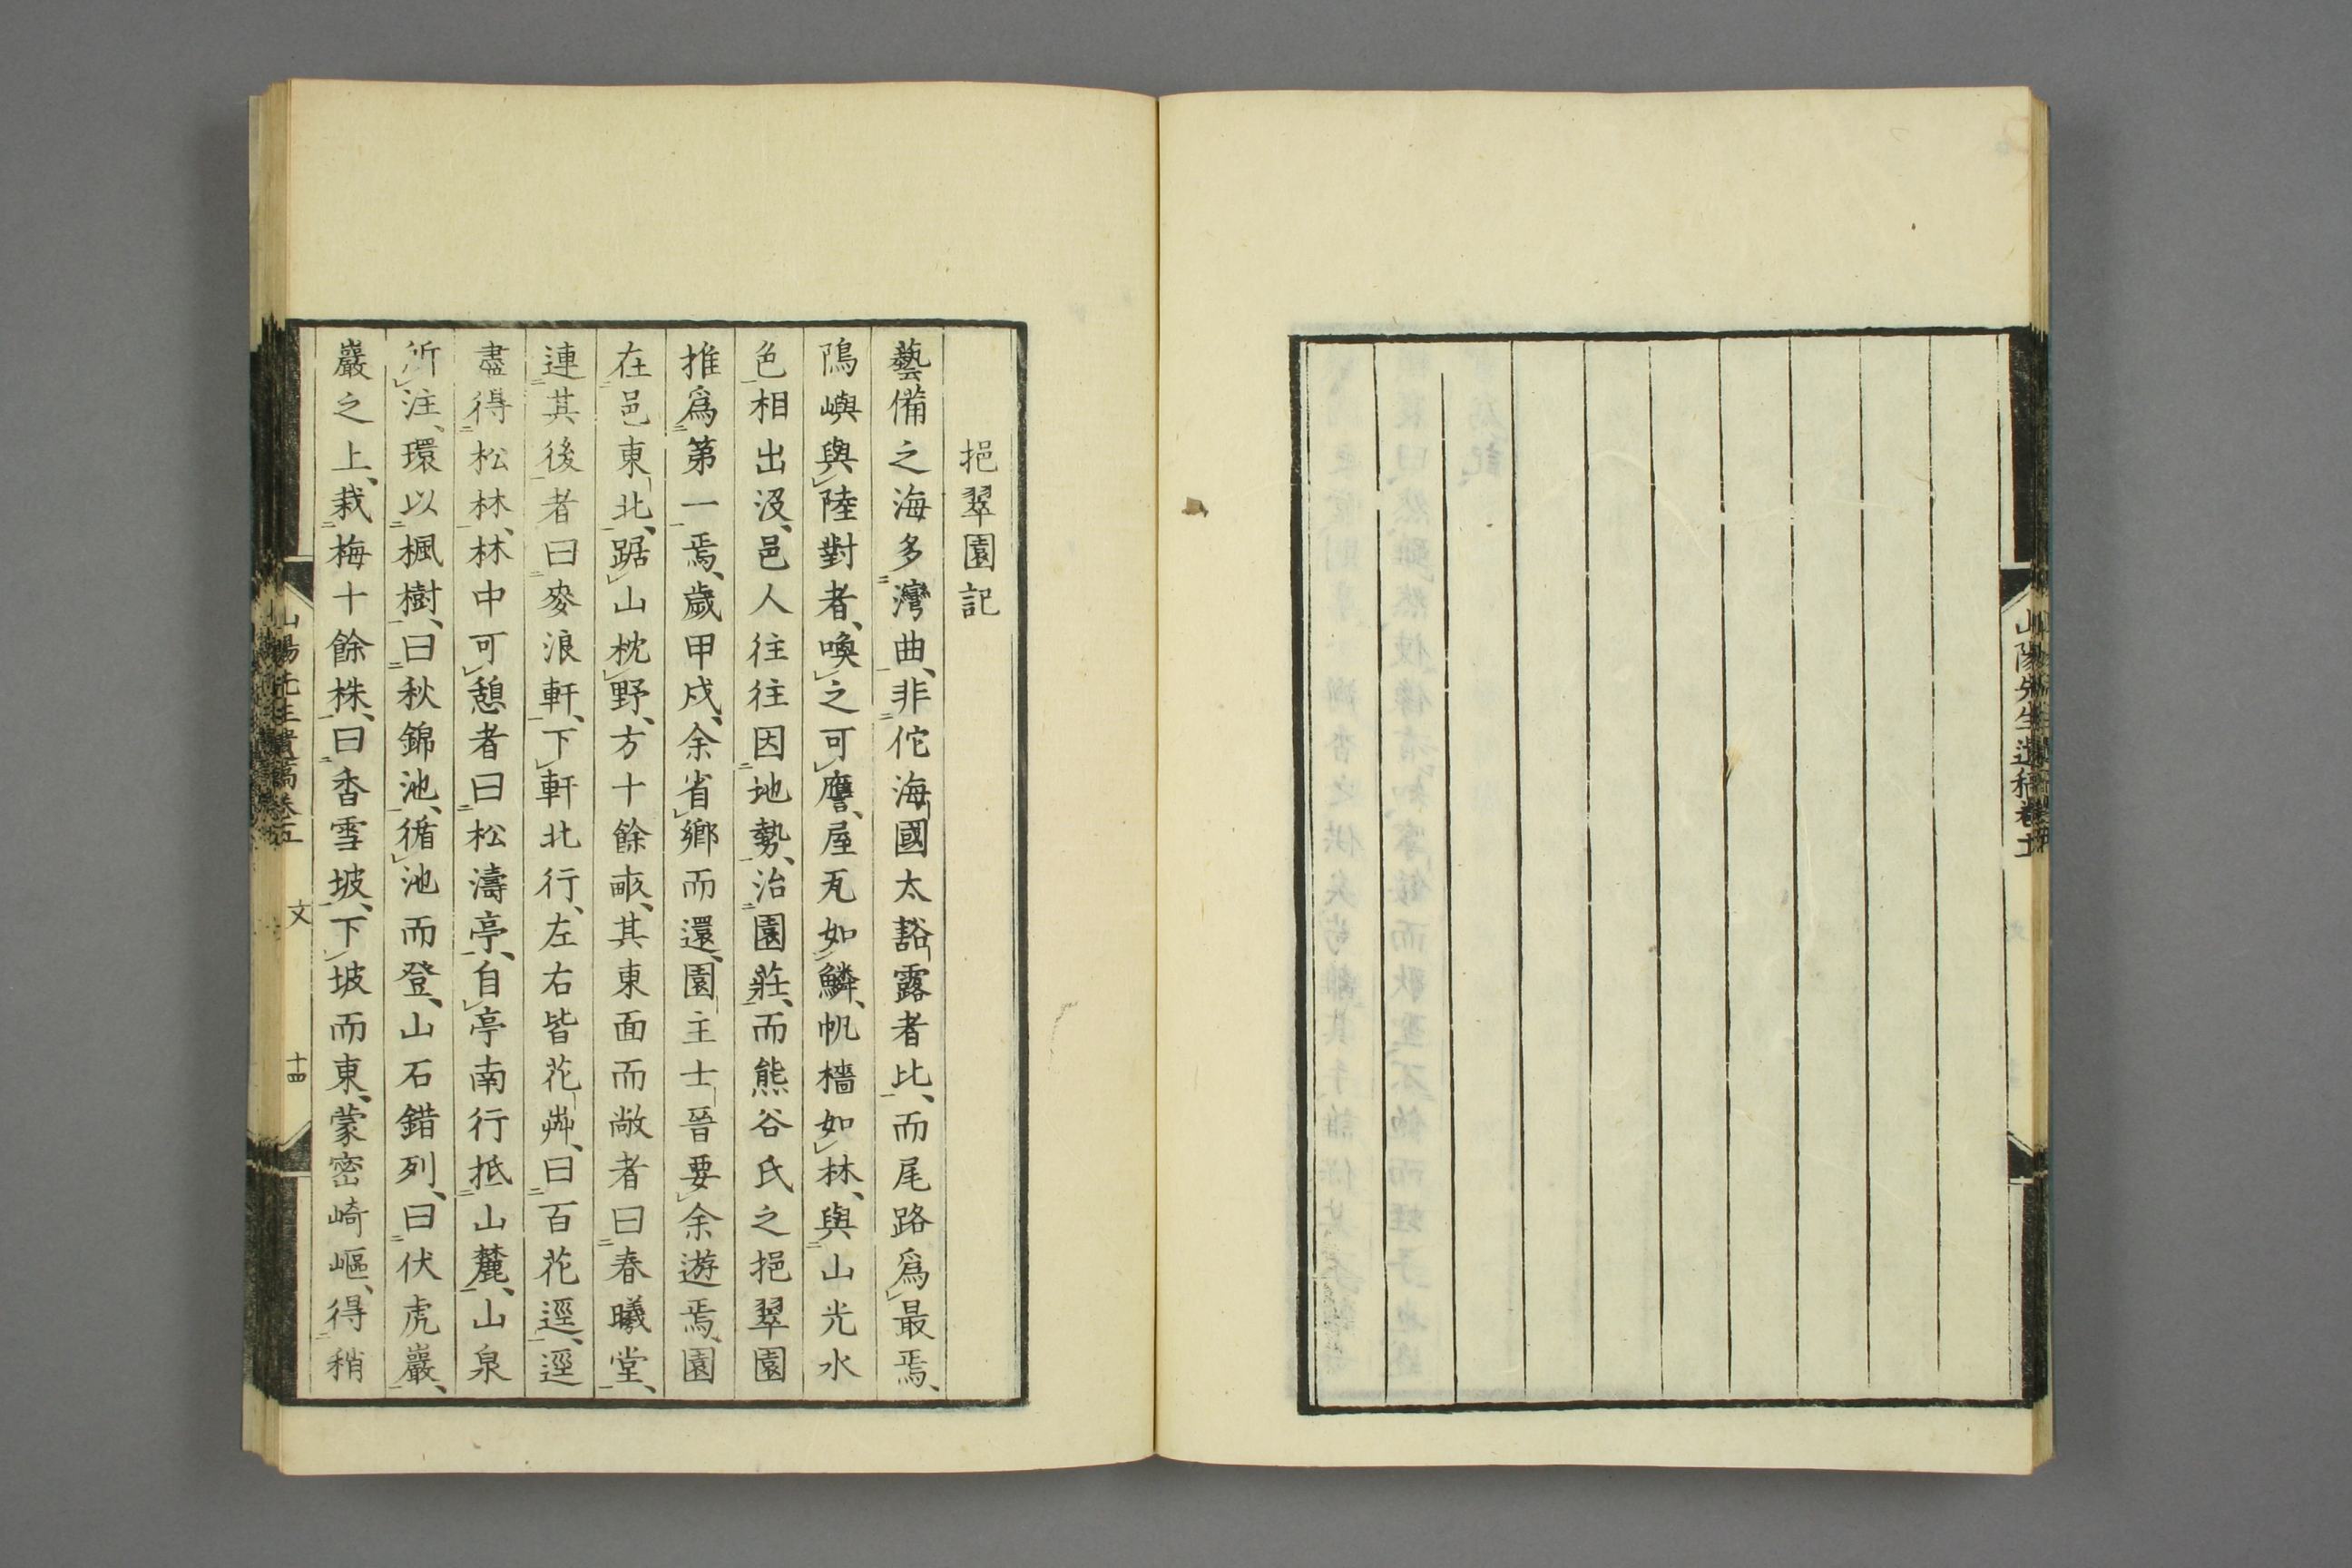 山陽先生遺稿卷
挹翠園記
藝備之海多灣曲、非佗海國太豁露者比、而尾路爲最焉、
隖嶼與陸對者、喚之可譍、屋瓦如鱗、帆檣如林、與山光水
色相出沒、邑人往往因地勢、治園莊、而熊谷氏之挹翠園
推爲第一焉、歲甲戍、余省鄉而還、園主士晉要余遊焉、園
在邑東北、踞山枕野、方十餘畞、其東面而敞者曰春曦堂、
連其後者曰麥浪軒、下軒北行、左右皆花艸、曰百花逕、逕
盡得松林、林中可憩者曰松濤亭、自亭南行抵山麓、山泉
所注、環以楓樹、曰秋錦池、循池而登、山石錯列、曰伏虎巖、
巖之上、栽梅十餘株、曰香雪坡、下坡而東、蒙密崎嶇、得稍
山陽先生遺稿卷五
文
十四